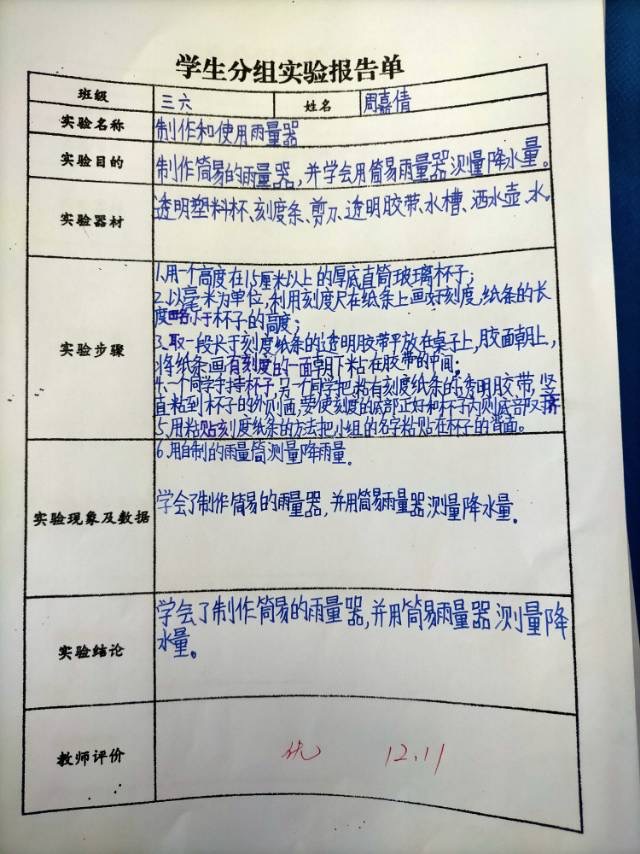 学生分组实验报告单
班级 三六 姓名 周嘉倩
实验名称 制作和使用雨量器
实验目的 制作简易的雨量器,并学会用简易雨量器测量降水量。
实验器材 透明塑料杯、刻度条、剪刀、透明胶带、水槽、洒水壶、水。
实验步骤
1.用一个高度在15厘米以上的厚底直筒玻璃杯子;
2.以毫米为单位,利用刻度尺在纸条上画好刻度,纸条的长
度略小于杯子的高度;
3.取一段长于刻度纸条的透明胶带平放在桌子上,胶面朝上,
将纸条画有刻度的一面朝下粘在胶带的中间;
4.一个同学手持杯子,另一个同学把粘有刻度纸条的透明胶带,竖
直粘到杯子的外侧面,要使刻度的底部正好和杯子内侧底部
5.用粘贴刻度纸条的方法把小组的名字粘贴在杯子的背面。
6.用自制的雨量筒测量降雨量。
实验现象及数据 学会了制作简易的雨量器,并用简易雨量器测量降水量.
实验结论 学会了制作简易的雨量器,并用简易雨量器测量降
水量。
教师评价 优 12.11